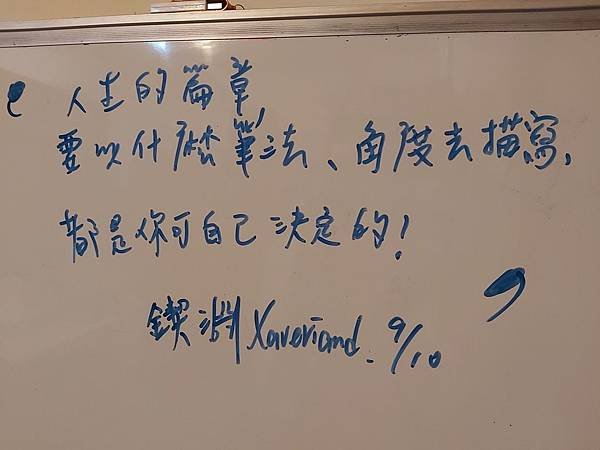 人生的篇章,
要以什麼筆法、角度去描寫,
都是你可自己決定的!
鍥淵 Xaveriand. 9/10